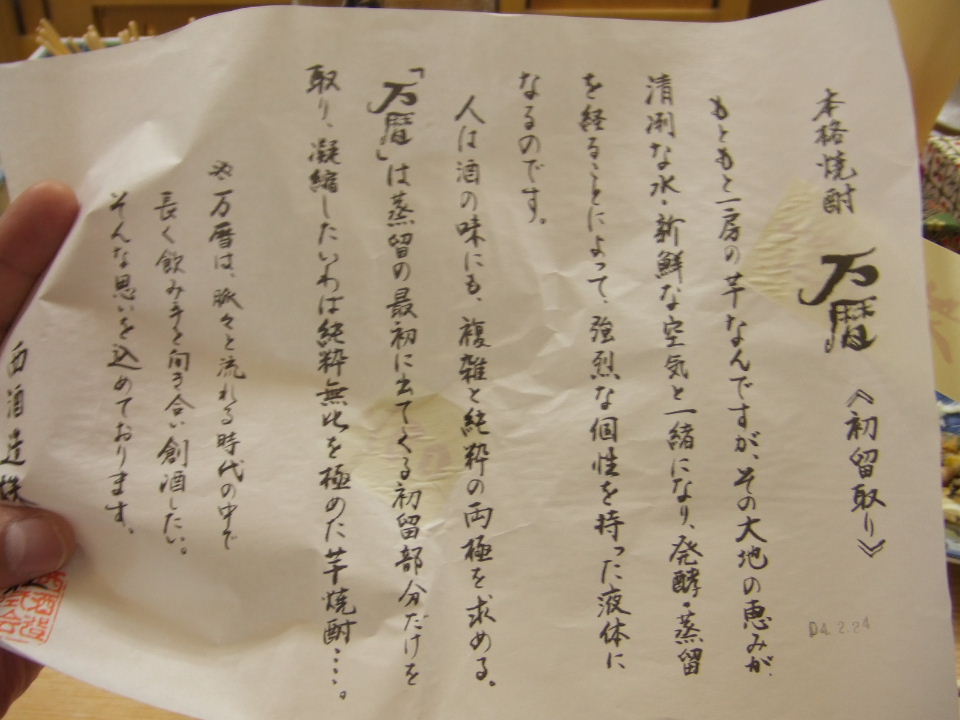 本格焼酎 万暦 《初留取り》
もともと一房の芋なんですが、その大地の恵みが、
清冽な水・新鮮な空気と一緒になり、発酵・蒸留
を経ることによって、強烈な個性を持った液体に
なるのです。
人は酒の味にも、複雑と純粋の両極を求める。
「万暦」は蒸留の最初に出てくる初留部分だけを
取り、凝縮したいわば純粋無比を極めた芋焼酎…。
万暦は、脈々と流れる時代の中で
長く飲み手と向き合い創酒したい。
そんな思いを込めております。
西酒造株
西酒造
式会
04.2.24